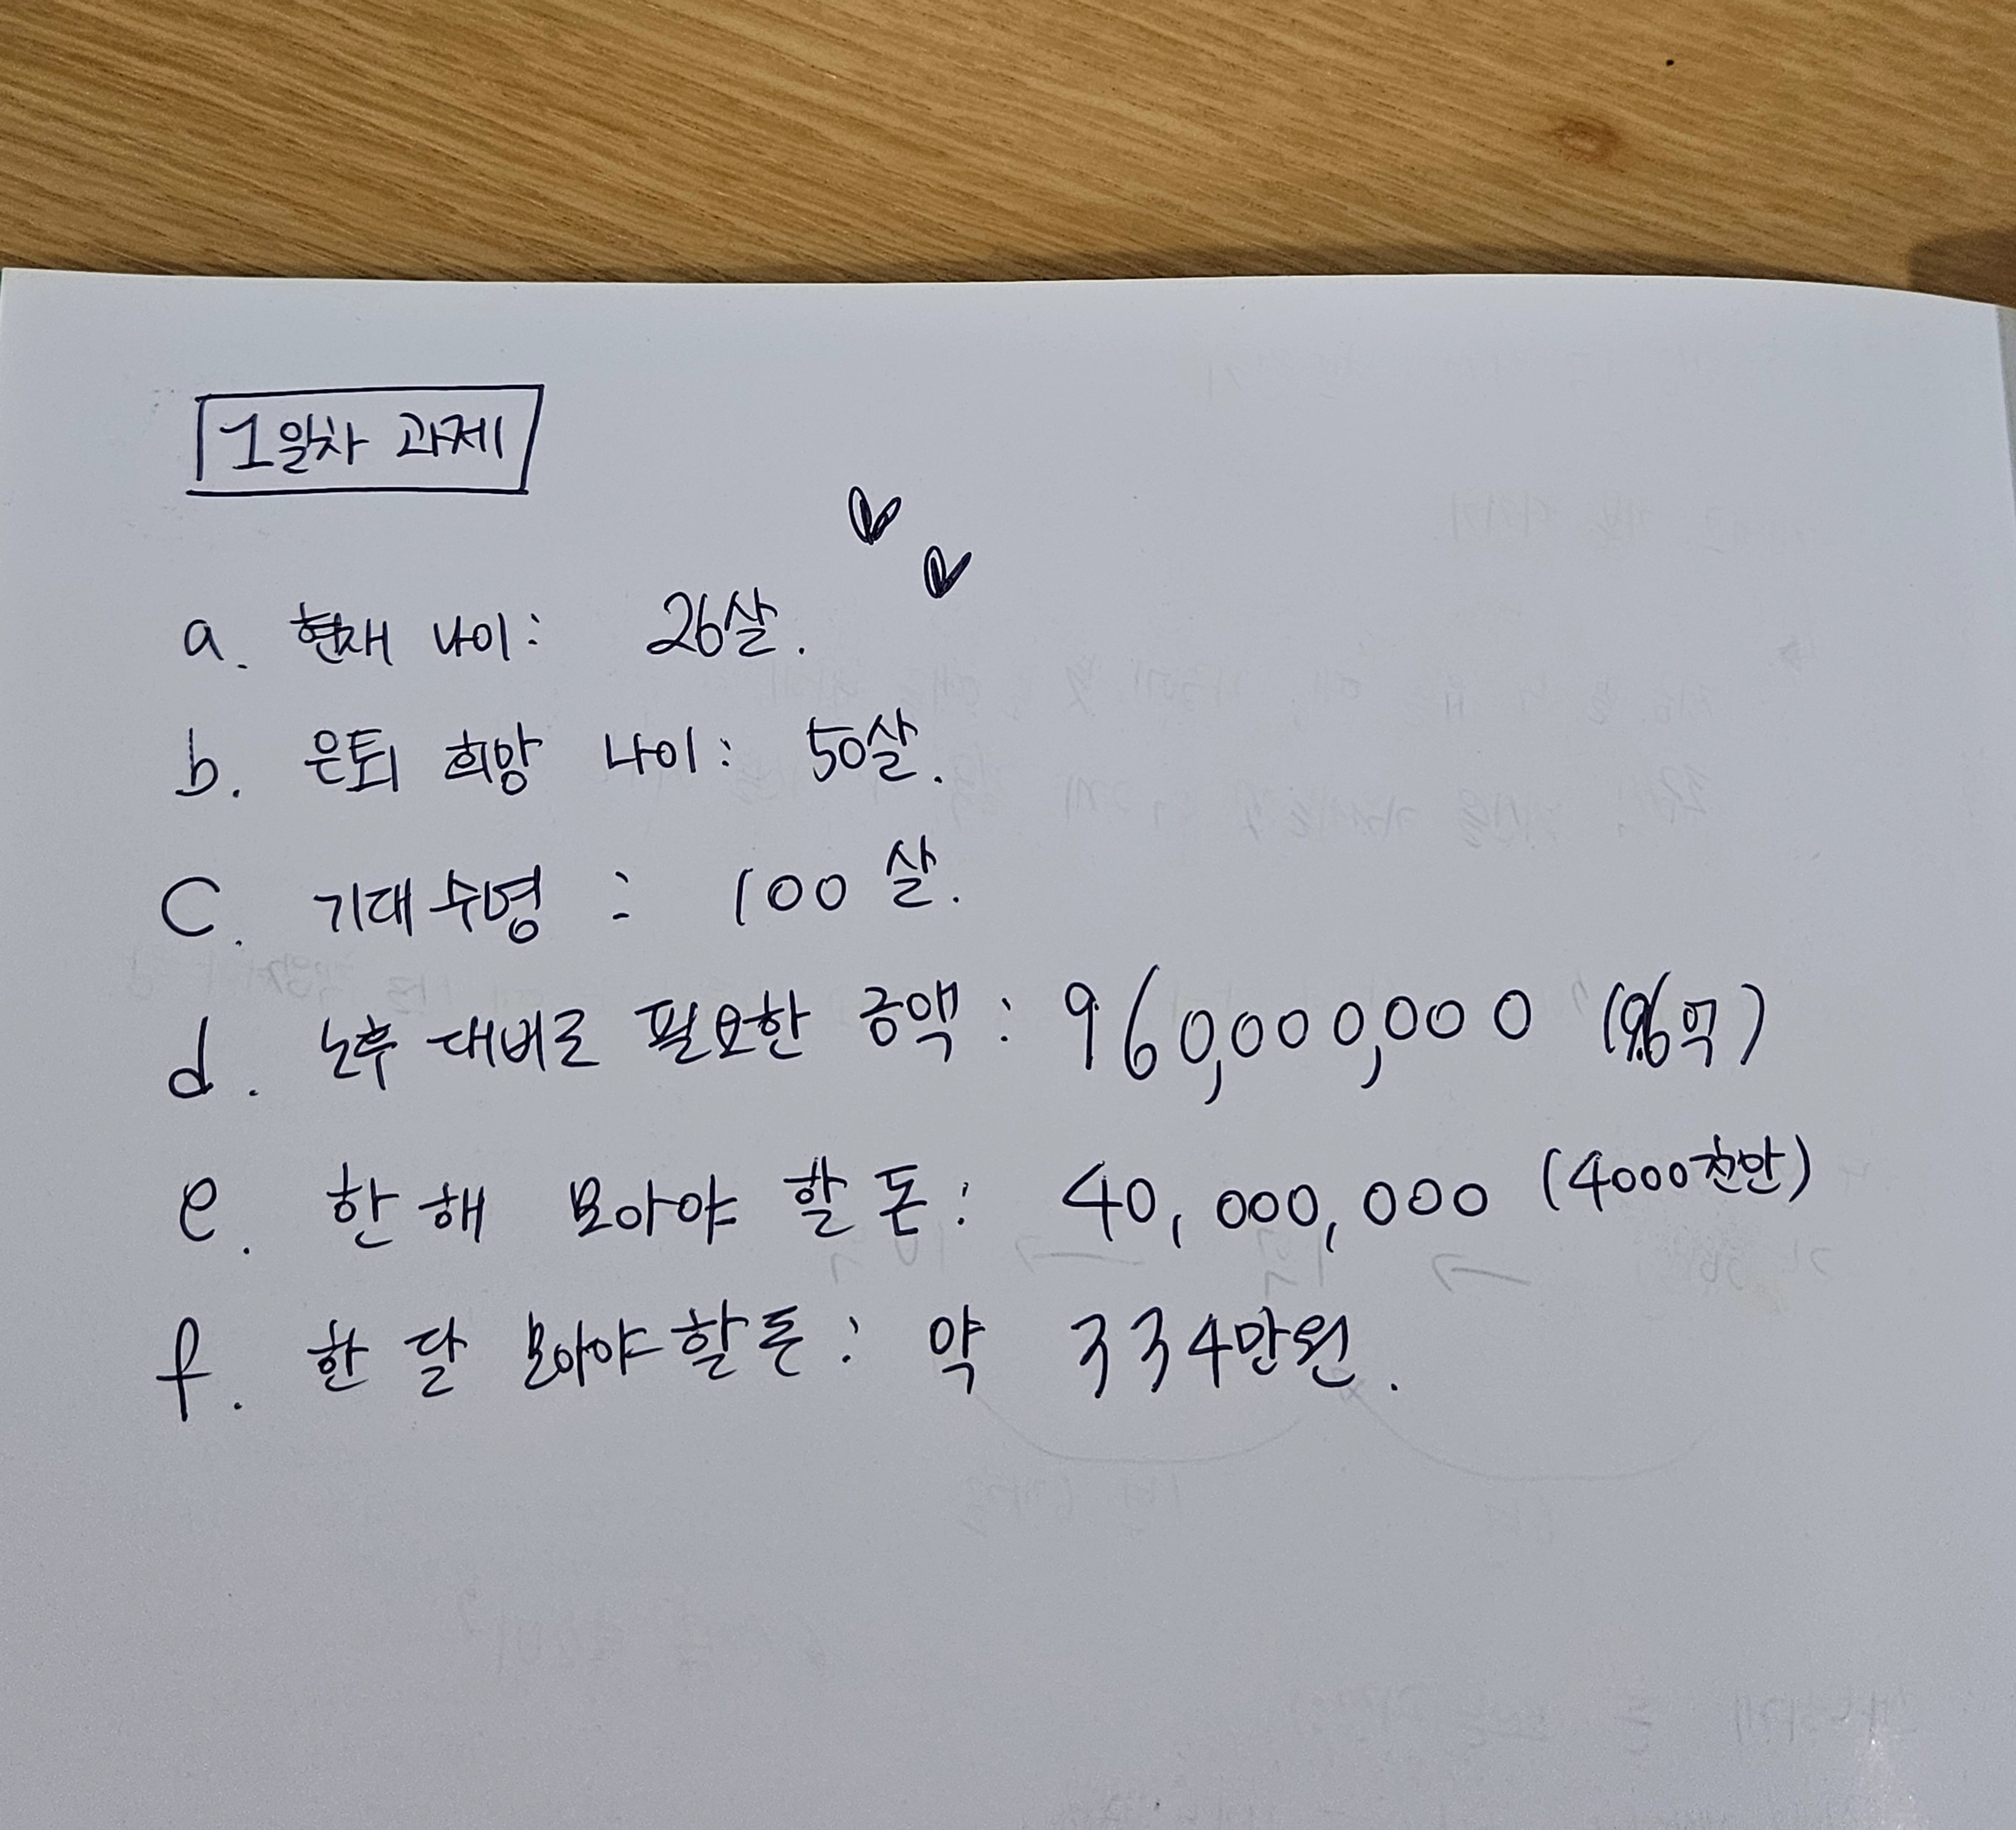 1일차 과제
a. 현재 나이: 26살.
b. 은퇴 희망 나이: 50살.
C. 기대수명 : 100 살.
d. 노후 대비로 필요한 금액 : 960,000,000 (9.6억)
e. 한 해 모아야 할 돈: 40,000,000 (4000천만)
f. 한 달 모아야할 돈: 약 334만원.